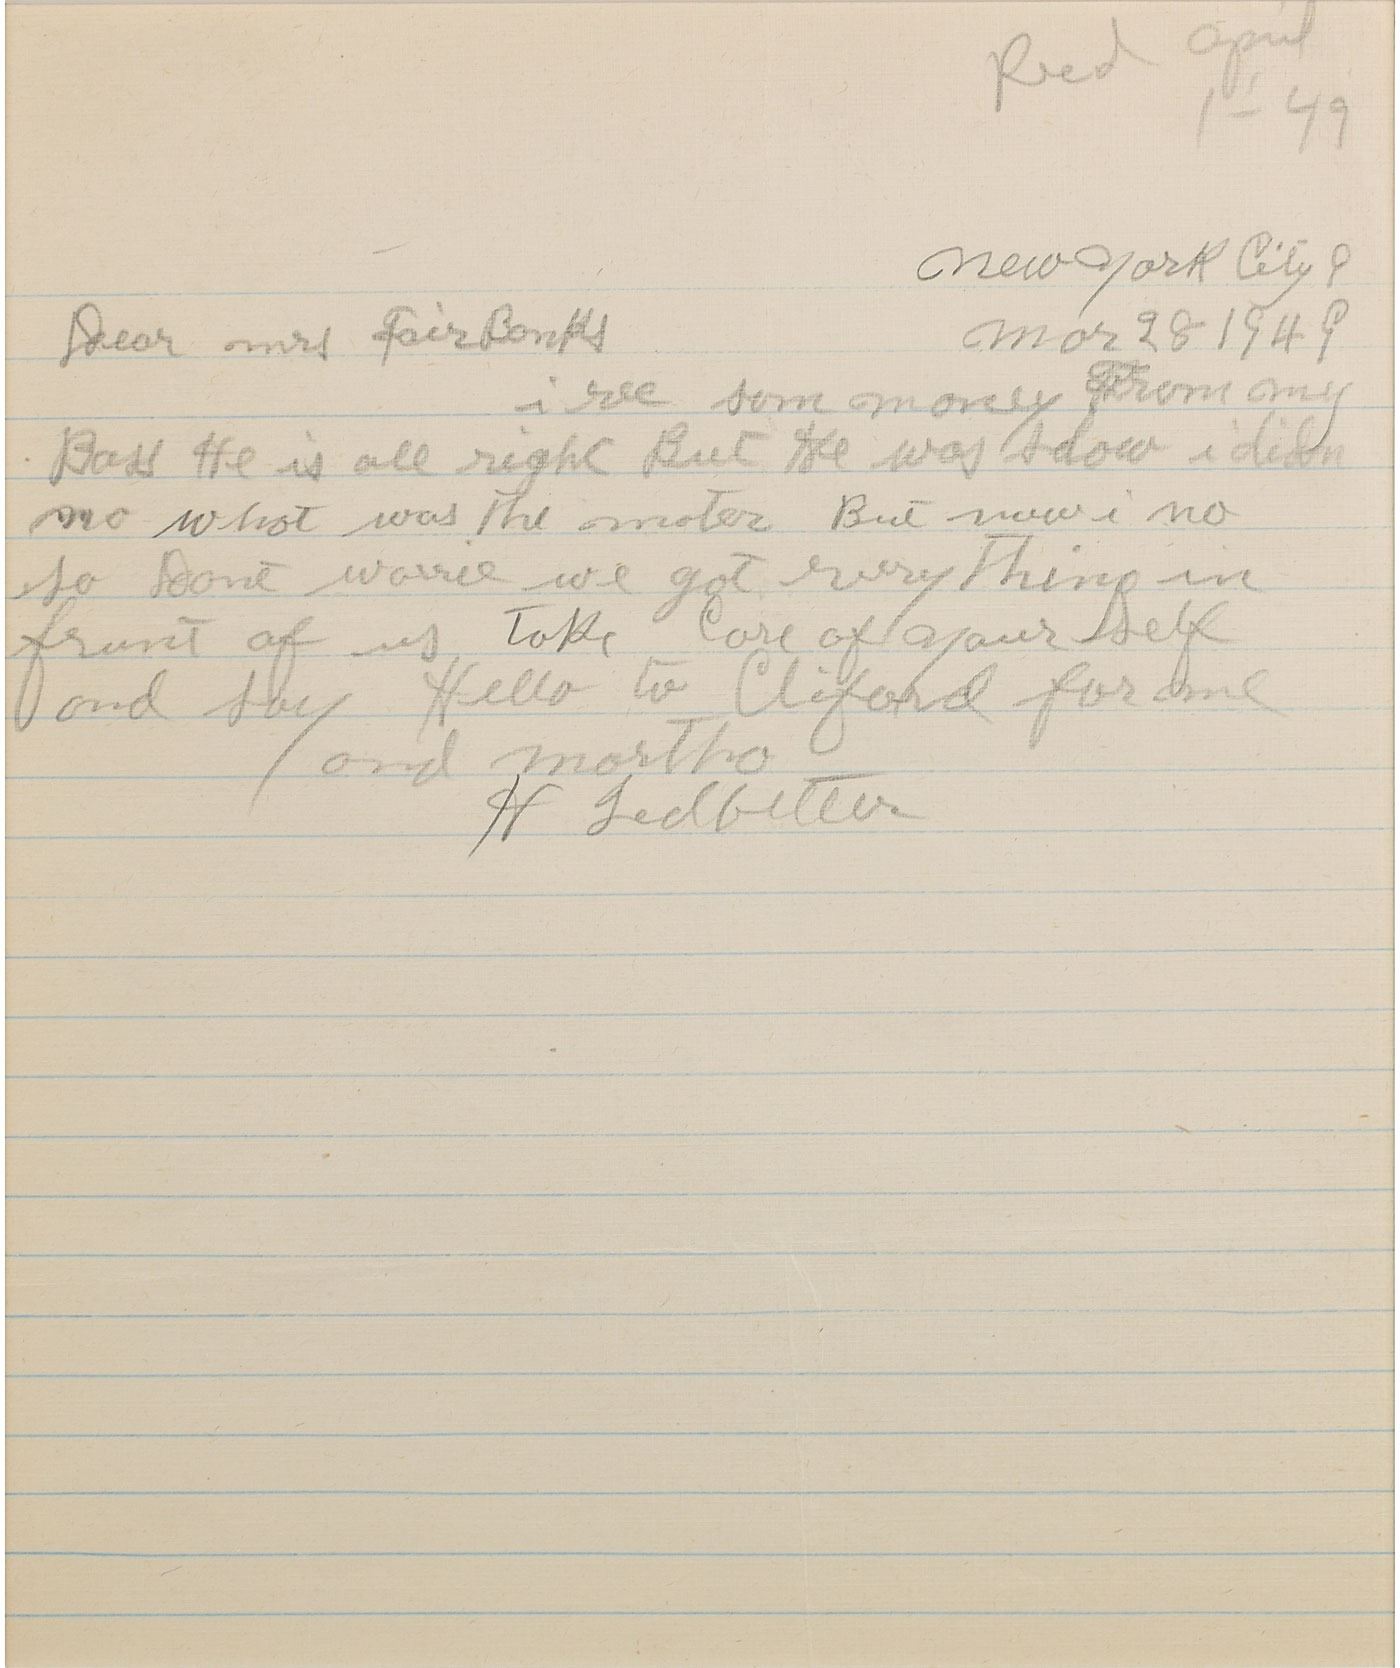 Recd April
1 - 49
New York City 9
Dear mrs FairBanks
Mar 28 1949
i rec som money From my
Boss He is all right But He was slow i didn
no what was The mater But now i no
so Dont worrie we got every Thing in
frunt of us Take Care of your self
and say Hello to Cliford for me
and martha
H Ledbetter